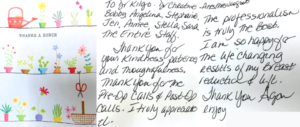 THANKS A BUNCH
To Dr Kingo. Dr Christine
Bobby Angelina, Stephanie,
Jen, Aimee, Stella, Sarah
The Entire Staff.
Thank you for
your kindness, patience
and thoughtfulness.
Thank you for the
Pre-Op Calls & Post-Op
calls. I truly appreciate
The professionalism
is truly the Best.
I am so happy for
the life changing
results of my Breast
reduction & life.
Thank you Again
enjoy